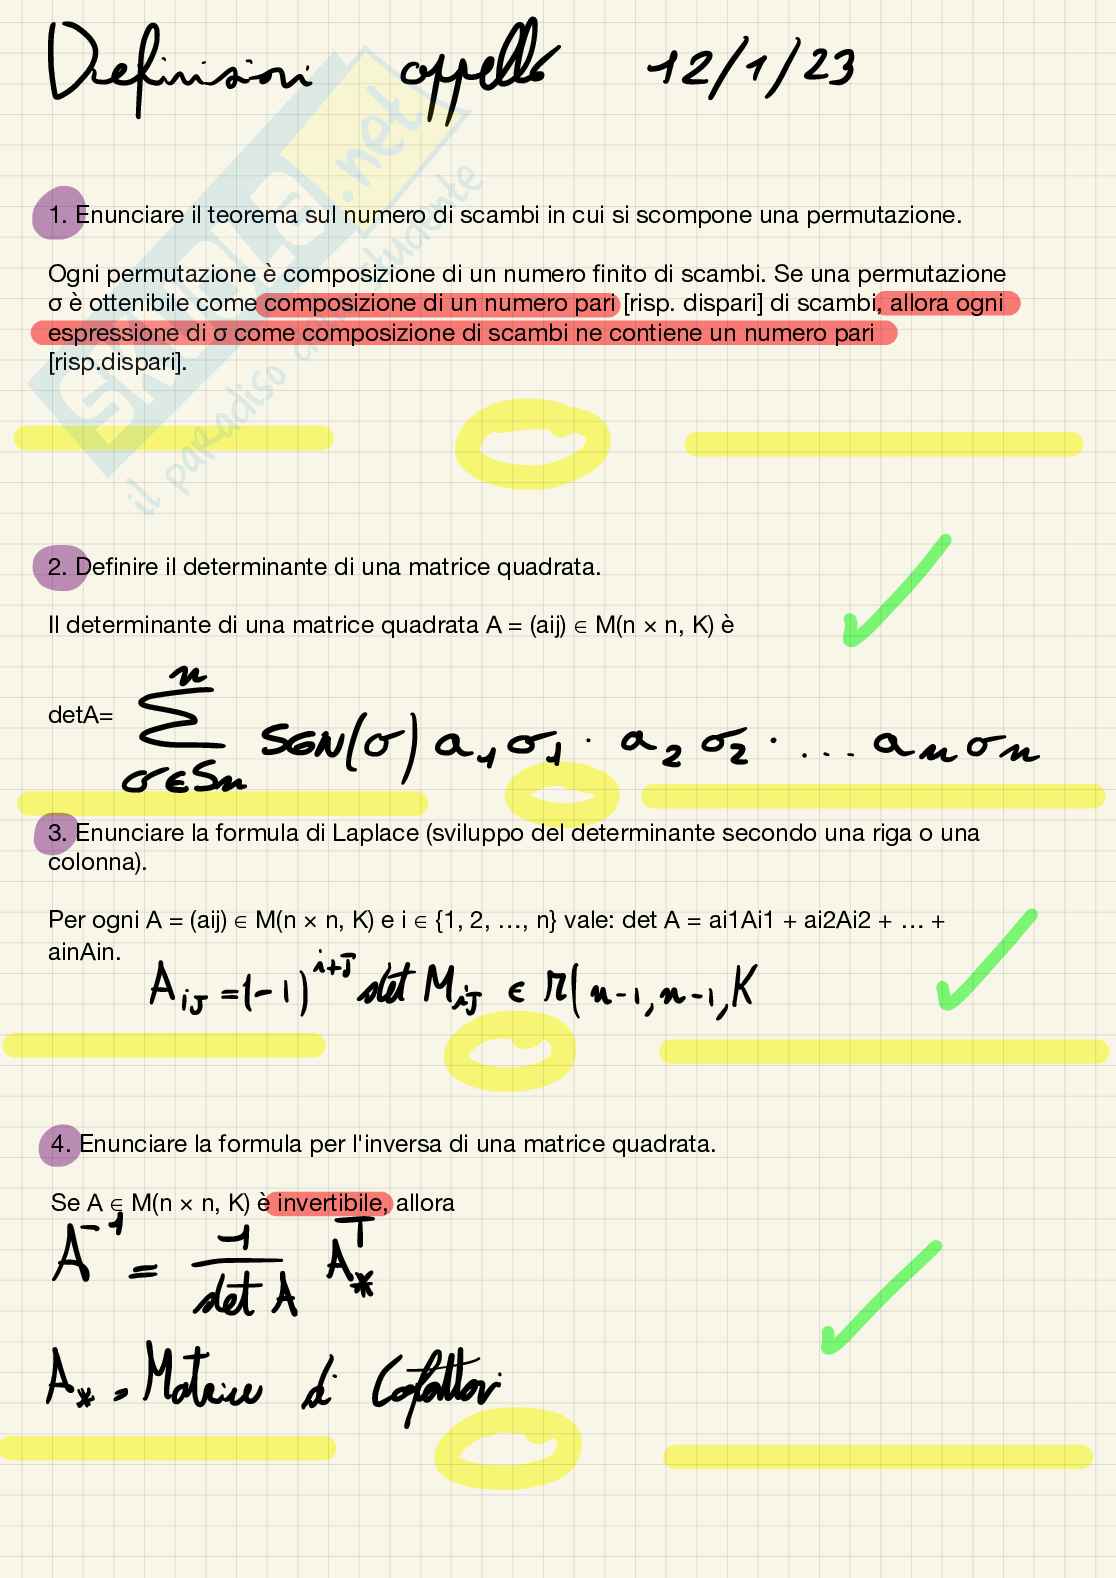 Definizioni appello 12/1/23
SKUOLA.net
il paradiso dello studente
1. Enunciare il teorema sul numero di scambi in cui si scompone una permutazione.
Ogni permutazione è composizione di un numero finito di scambi. Se una permutazione
σ è ottenibile come composizione di un numero pari [risp. dispari] di scambi, allora ogni
espressione di σ come composizione di scambi ne contiene un numero pari
[risp.dispari].
2. Definire il determinante di una matrice quadrata.
Il determinante di una matrice quadrata A = (aij) ∈ M(n × n, K) è
n
detA= Σ SGN(σ) a₁σ₁ · a₂σ₂ · ... aₙσₙ
σ∈Sn
3. Enunciare la formula di Laplace (sviluppo del determinante secondo una riga o una
colonna).
Per ogni A = (aij) ∈ M(n × n, K) e i ∈ {1, 2, …, n} vale: det A = ai1Ai1 + ai2Ai2 + … +
ainAin.
A_ij = (-1)^i+j det M_ij ∈ M(n-1, n-1, K
4. Enunciare la formula per l'inversa di una matrice quadrata.
Se A ∈ M(n × n, K) è invertibile, allora
A⁻¹ = 1/det A A_*^T
A_* = Matrice di Cofattori